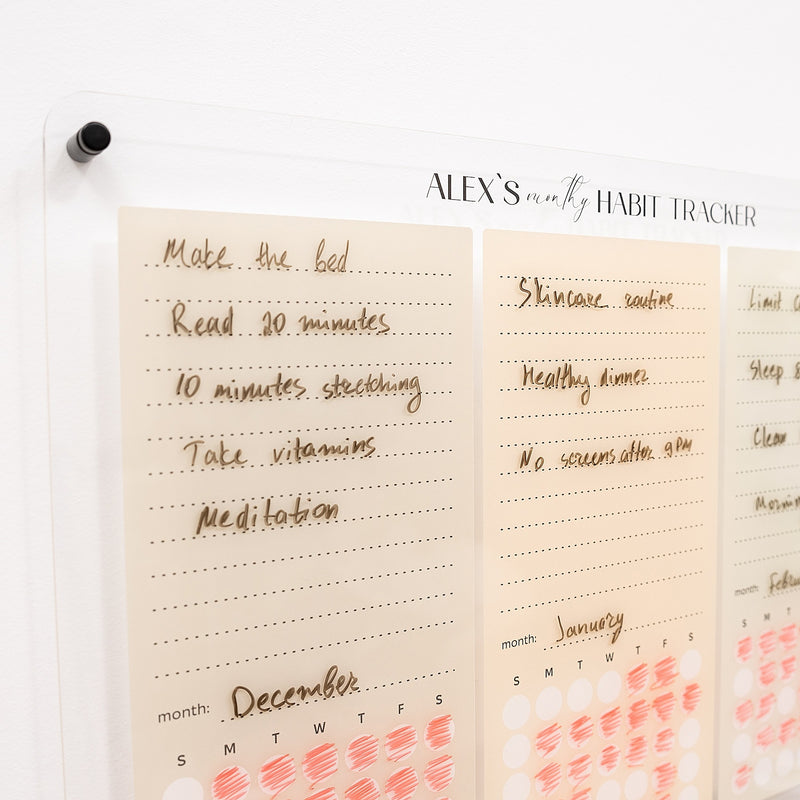 ALEX`S monthly HABIT TRACKER
Make the bed
Read 20 minutes
10 minutes stretching
Take vitamins
Meditation
month: December
S M T W T F S
Skincare routine
Healthy dinner
No screens after 9 PM
month: January
S M T W T F S
Limit
Sleep
Clean
month:
S M T